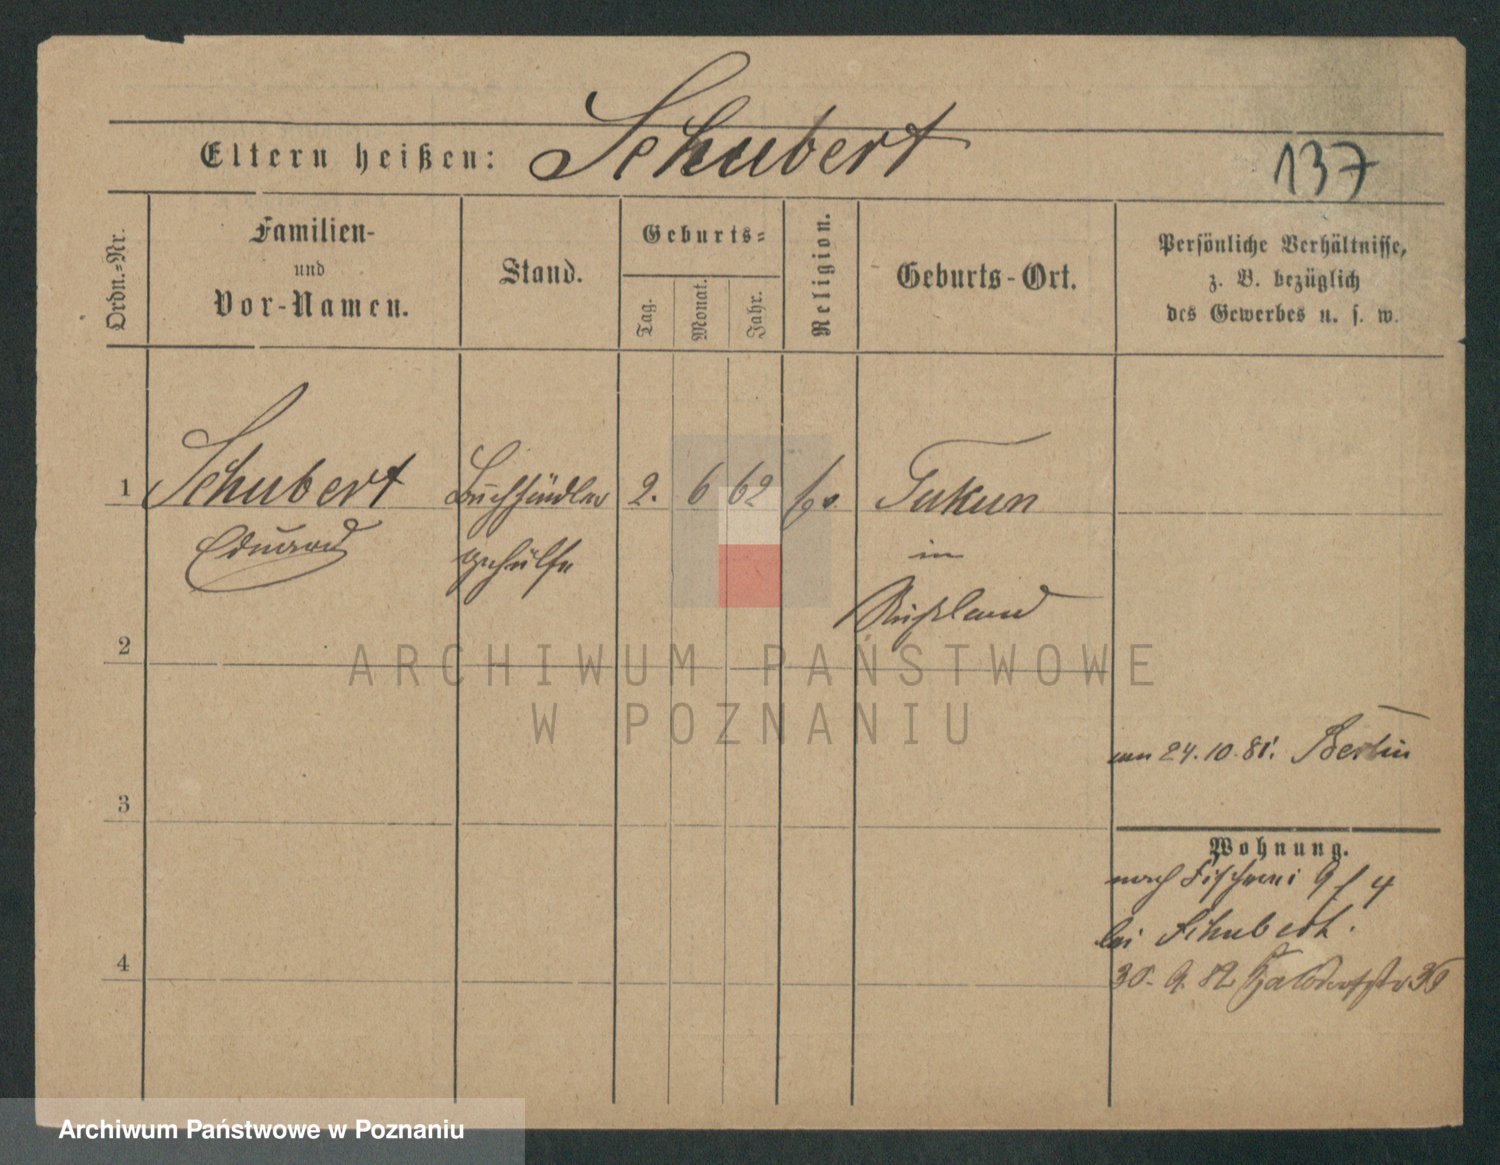 Eltern heißen: Schubert
137
Ordn.-Nr.
Familien-
und
Vor-Namen.
Stand.
Geburts-
Tag.
Monat.
Jahr.
Religion.
Geburts-Ort.
Persönliche Verhältnisse,
z. B. bezüglich
des Gewerbes u. s. w.
1 Schubert Buchhändler 2. 6 62 Tukun
Eduard gehülfe in
Rußland
2
ARCHIWUM PAŃSTWOWE
W POZNANIU
24.10.81. Berlin
3
Wohnung.
nach Fischerei 9 / 4
bei Schubert.
4
30. 9. 82 Halbdorfstr 36
Archiwum Państwowe w Poznaniu